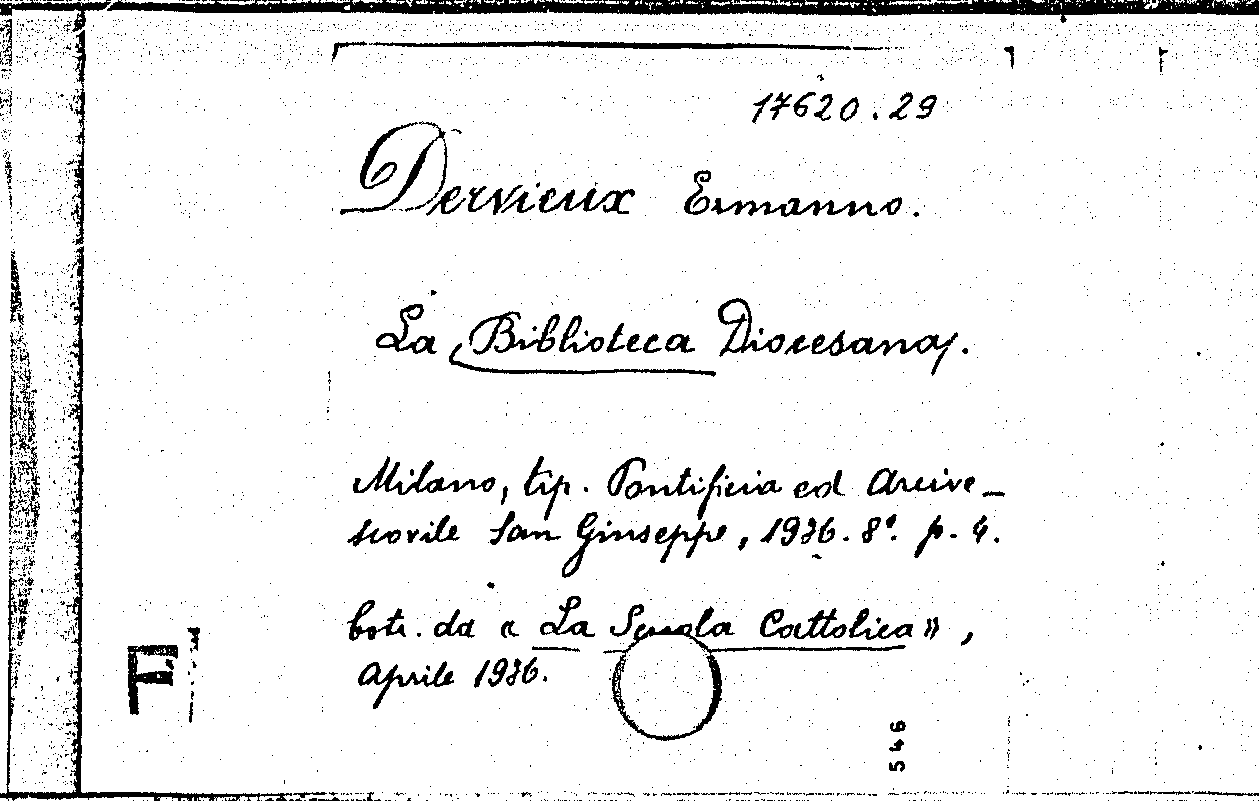 17620.29
Dervieux Ermanno.
La Biblioteca Diocesana.
Milano, tip. Pontificia ed Arcive-
scovile San Giuseppe, 1936. 8°. p. 4.
Estr. da « La Scuola Cattolica »,
Aprile 1936.
546